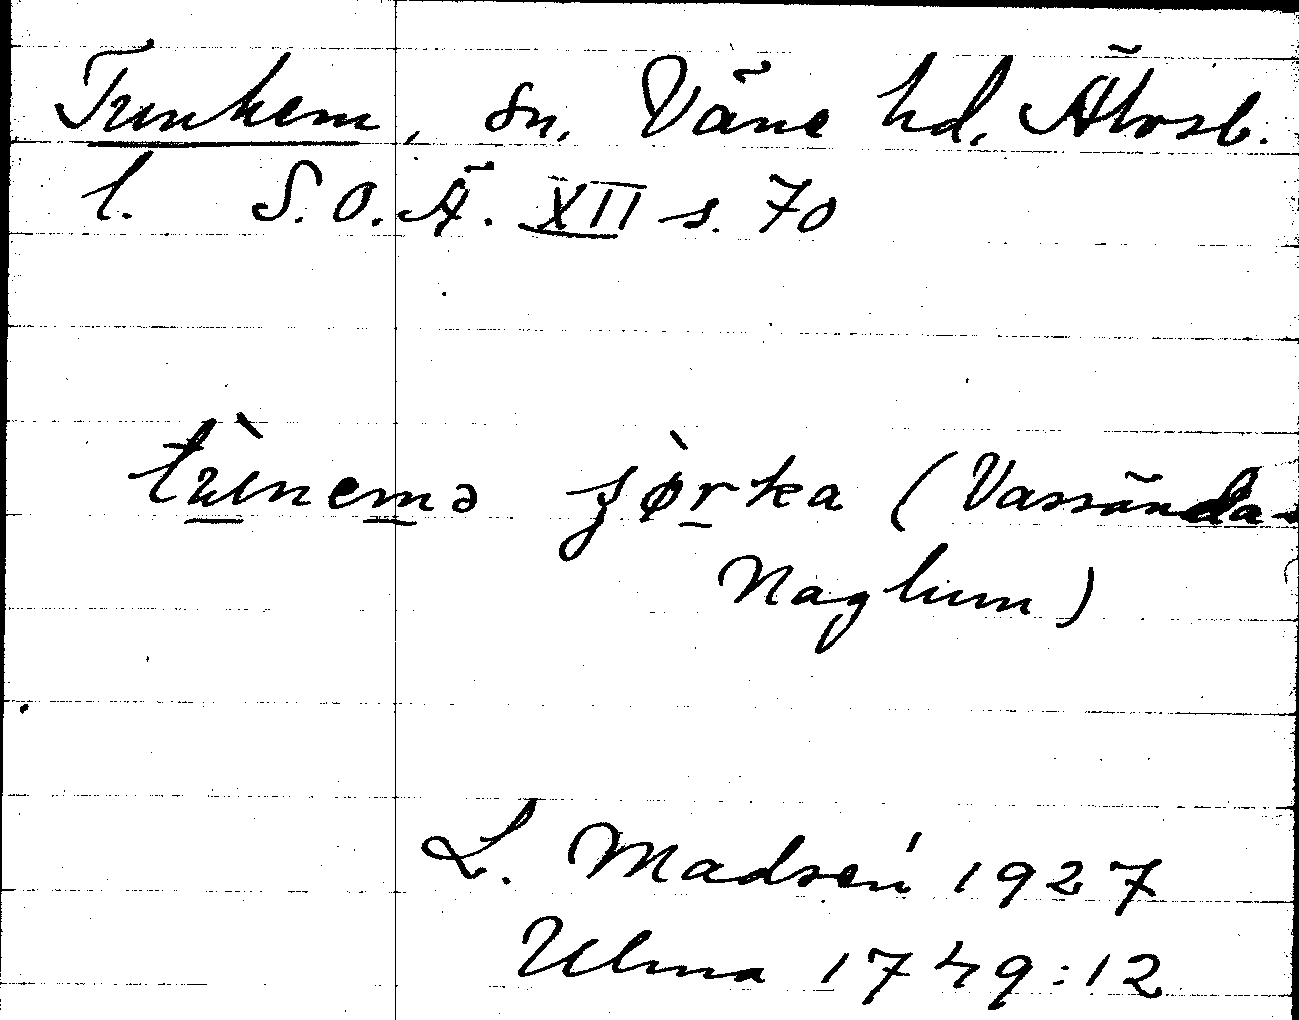 Trunhem, sn, Väne hd. Älvsb.
l. S.O.Ä. XII s. 70
trùnemə ʒø̀rka (Vassända-
Naglum)
L. Madsén 1927
Ulma 1749:12